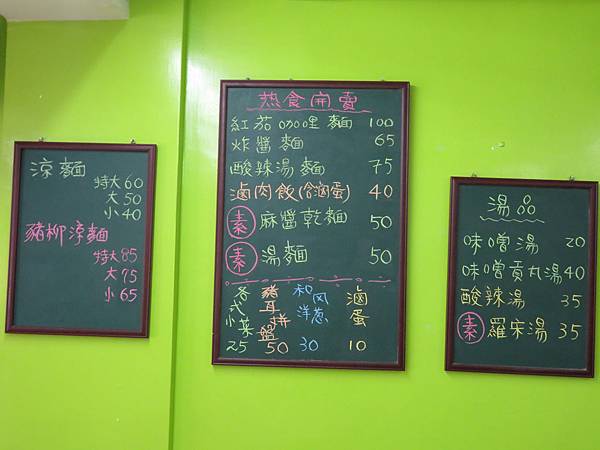 涼麵
特大60
大 50
小 40
豬柳涼麵
特大85
大 75
小 65
热食開賣
紅茄咖哩麵 100
炸醬麵 65
酸辣湯麵 75
滷肉飯(含滷蛋) 40
素 麻醬乾麵 50
素 湯麵 50
各式小菜 25
豬耳拼盤 50
和风洋葱 30
滷蛋 10
湯品
味噌湯 20
味噌貢丸湯 40
酸辣湯 35
素 羅宋湯 35